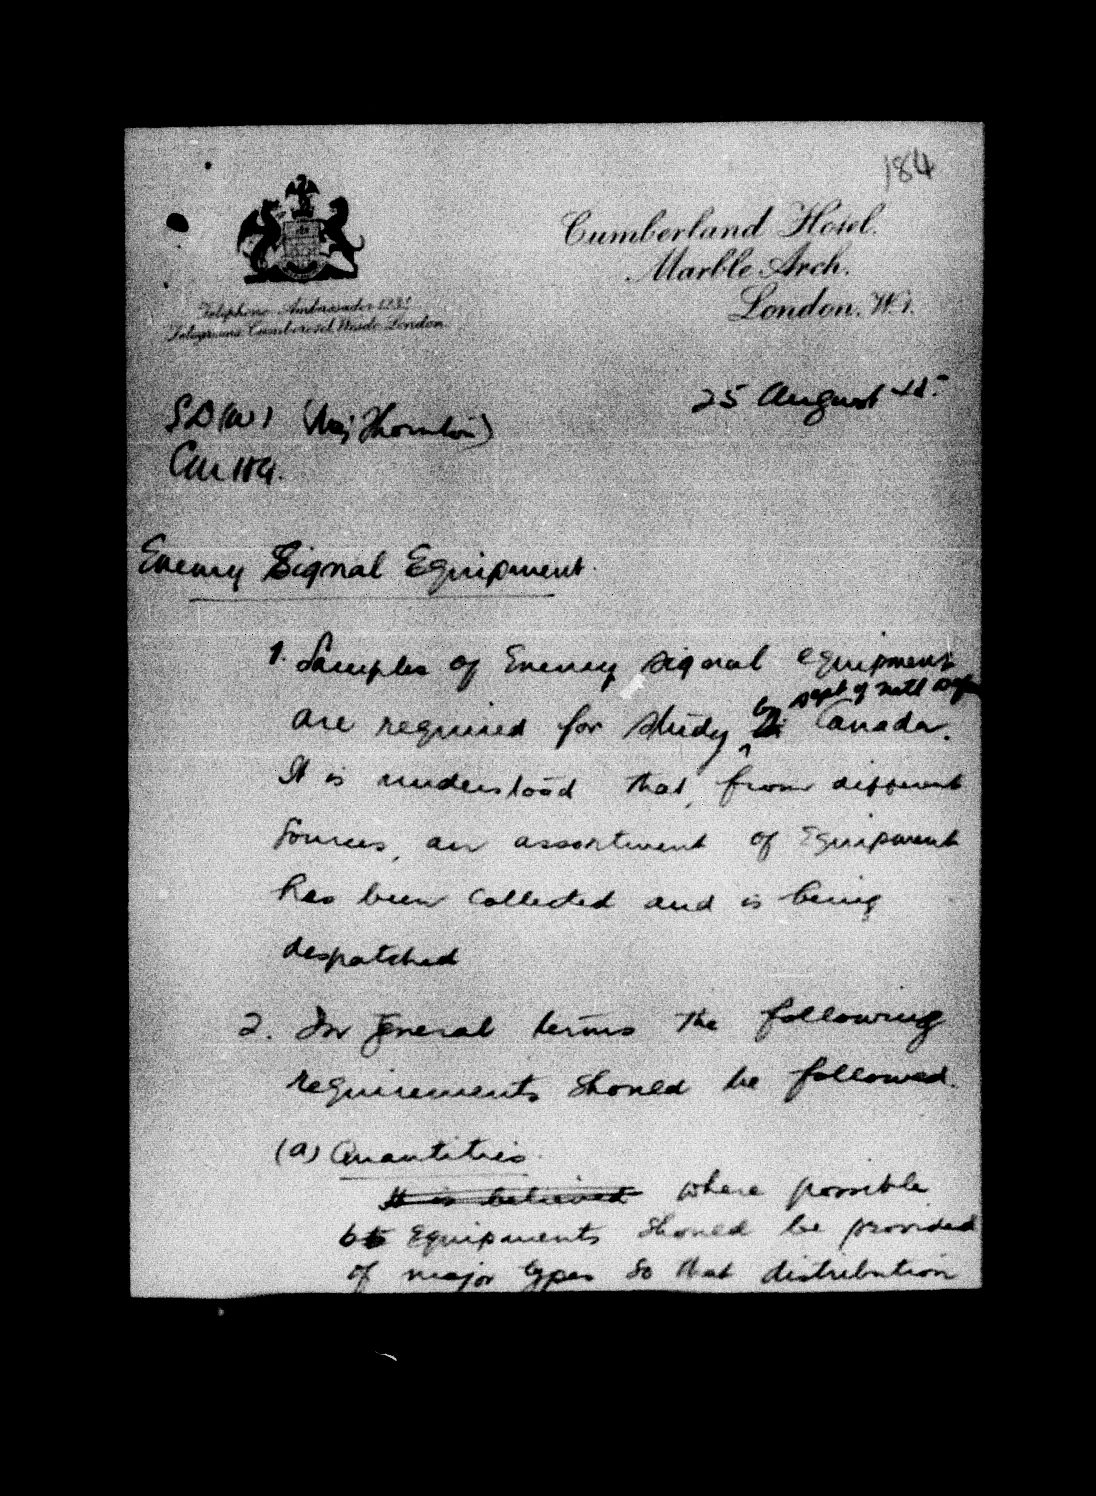 184
Cumberland Hotel.
Marble Arch.
London. W.1.
Telephone Ambassador 1234
Telegrams Cumberotel Wesdo London.
25 August 45.
SD(W) (Maj Thornton)
CMHQ.
Enemy Signal Equipment.
1. Samples of Enemy Signal equipment
by Dept of Natl Def
are required for study Canada.
It is understood that, from different
sources, an assortment of Equipment
has been collected and is being
despatched
2. In general terms the following
requirements should be followed.
(a) Quantities.
It is believed where possible
6 Equipments should be provided
of major types so that distribution